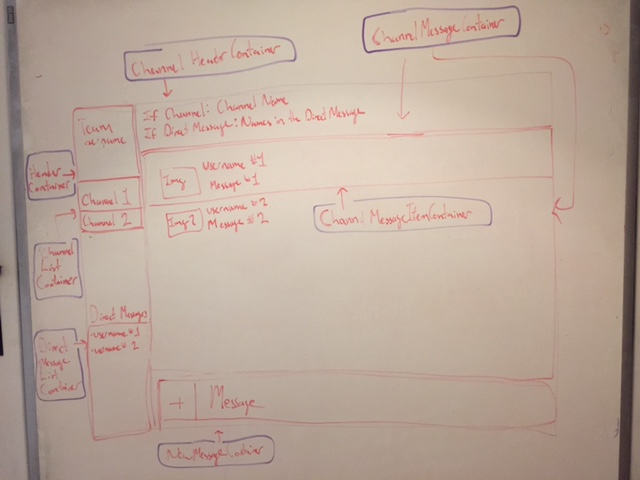 Channel HeaderContainer
ChannelMessageContainer
Team
If Channel: Channel Name
If Direct Message: Names in the Direct Message
Header
Container
Img
username #1
Message #1
Channel 1
Channel 2
Img2
username #2
Message #2
Channel MessageItemContainer
Channel
List
Container
Direct Messages
-username #1
-username #2
Direct
Message
List
Container
+
Message
NewMessageContainer